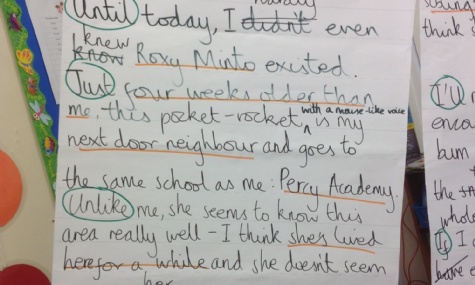 Until today, I didn't even
know knew Roxy Minto existed.
Just four weeks older than
me, this pocket-rocket, with a mouse-like voice is my
next door neighbour and goes to
the same school as me: Percy Academy.
Unlike me, she seems to know this
area really well - I think she's lived
here for a while and she doesn't seem
her
think s
I'll
enco
bum
the
whol
Is I